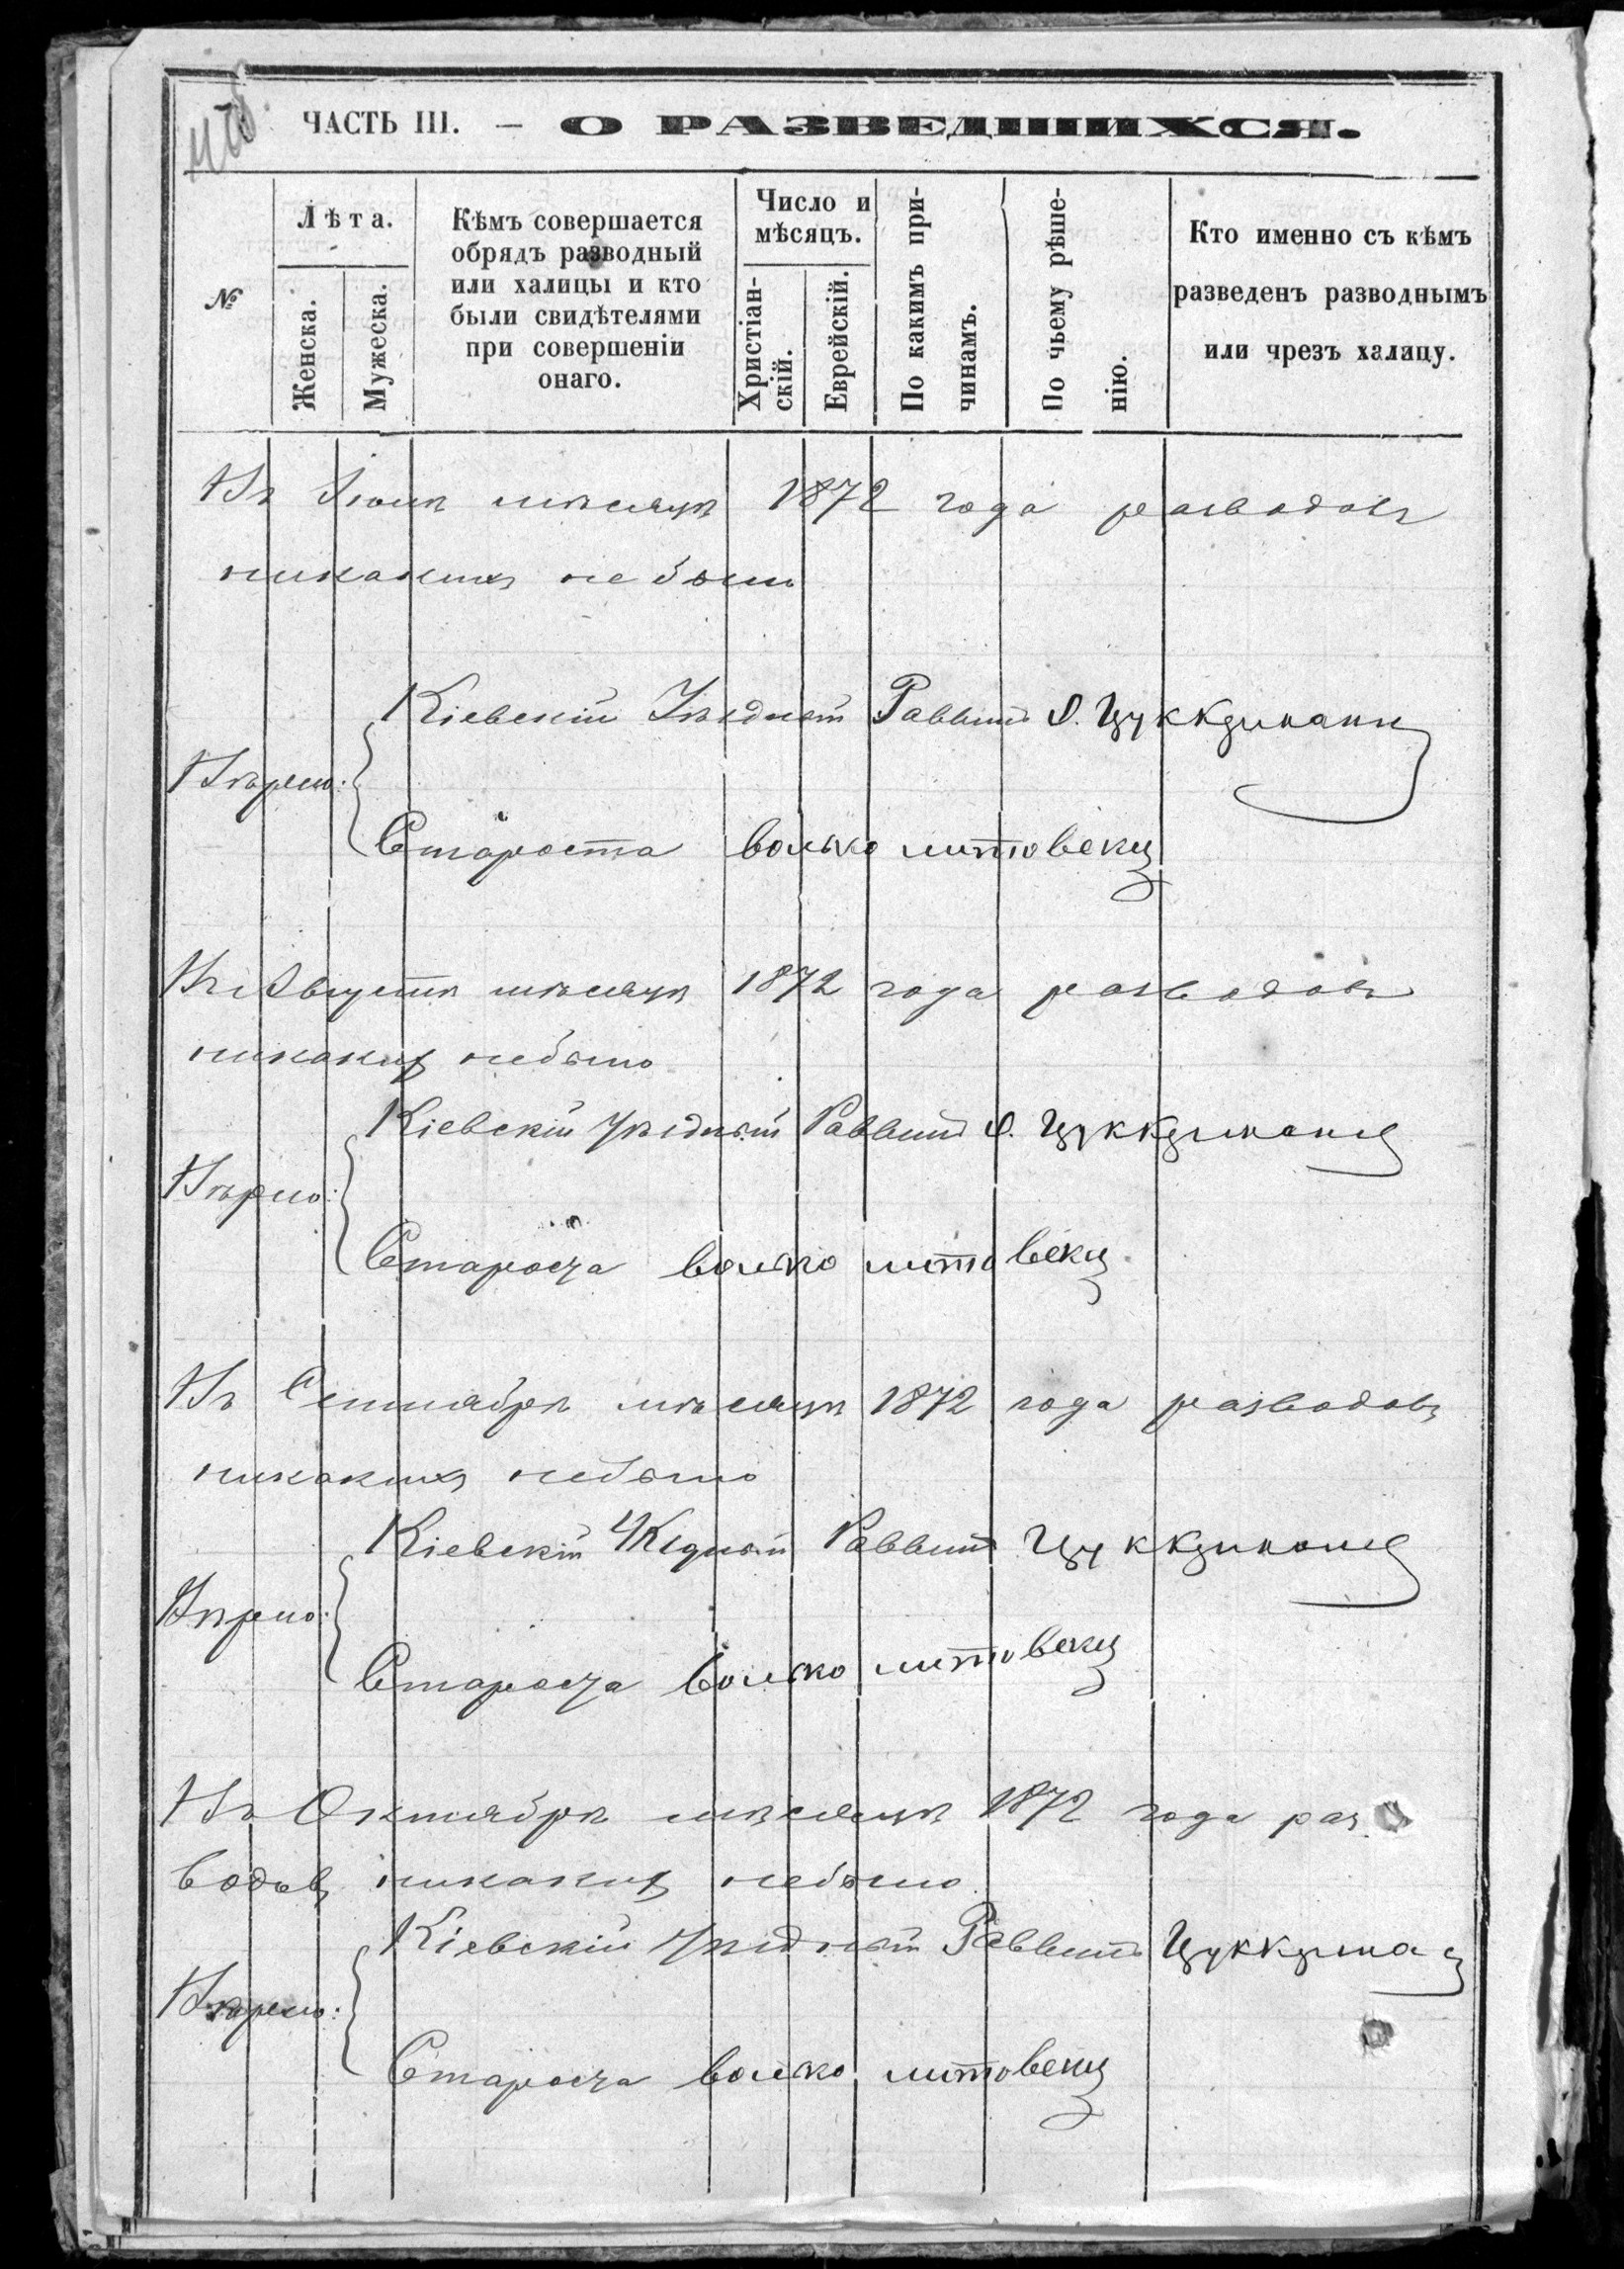 ЧАСТЬ III. — О РАЗВЕДШИХСЯ.
№
Лѣта.
Женска.
Мужеска.
Кѣмъ совершается
обрядъ разводный
или халицы и кто
были свидѣтелями
при совершеніи
онаго.
Число и
мѣсяцъ.
Христіан-
скій.
Еврейскій.
По какимъ при-
чинамъ.
По чьему рѣше-
нію.
Кто именно съ кѣмъ
разведенъ разводнымъ
или чрезъ халицу.
Въ Іюлѣ мѣсяцѣ 1872 года разводовъ
никакихъ не было
Кіевскій Уѣздный Раввинъ Цуккерманъ
Вѣрно:
Староста Волько Литовецъ
Въ Августѣ мѣсяцѣ 1872 года разводовъ
никакихъ небыло
Кіевскій Уѣздный Раввинъ Цуккерманъ
Вѣрно:
Староста Волько Литовецъ
Въ Сентябрѣ мѣсяцѣ 1872 года разводовъ
никакихъ небыло
Кіевскій Уѣздный Раввинъ Цуккерманъ
Вѣрно:
Староста Волько Литовецъ
Въ Октябрѣ мѣсяцѣ 1872 года раз
водовъ никакихъ небыло
Кіевскій Уѣздный Раввинъ Цуккерманъ
Вѣрно:
Староста Волько Литовецъ